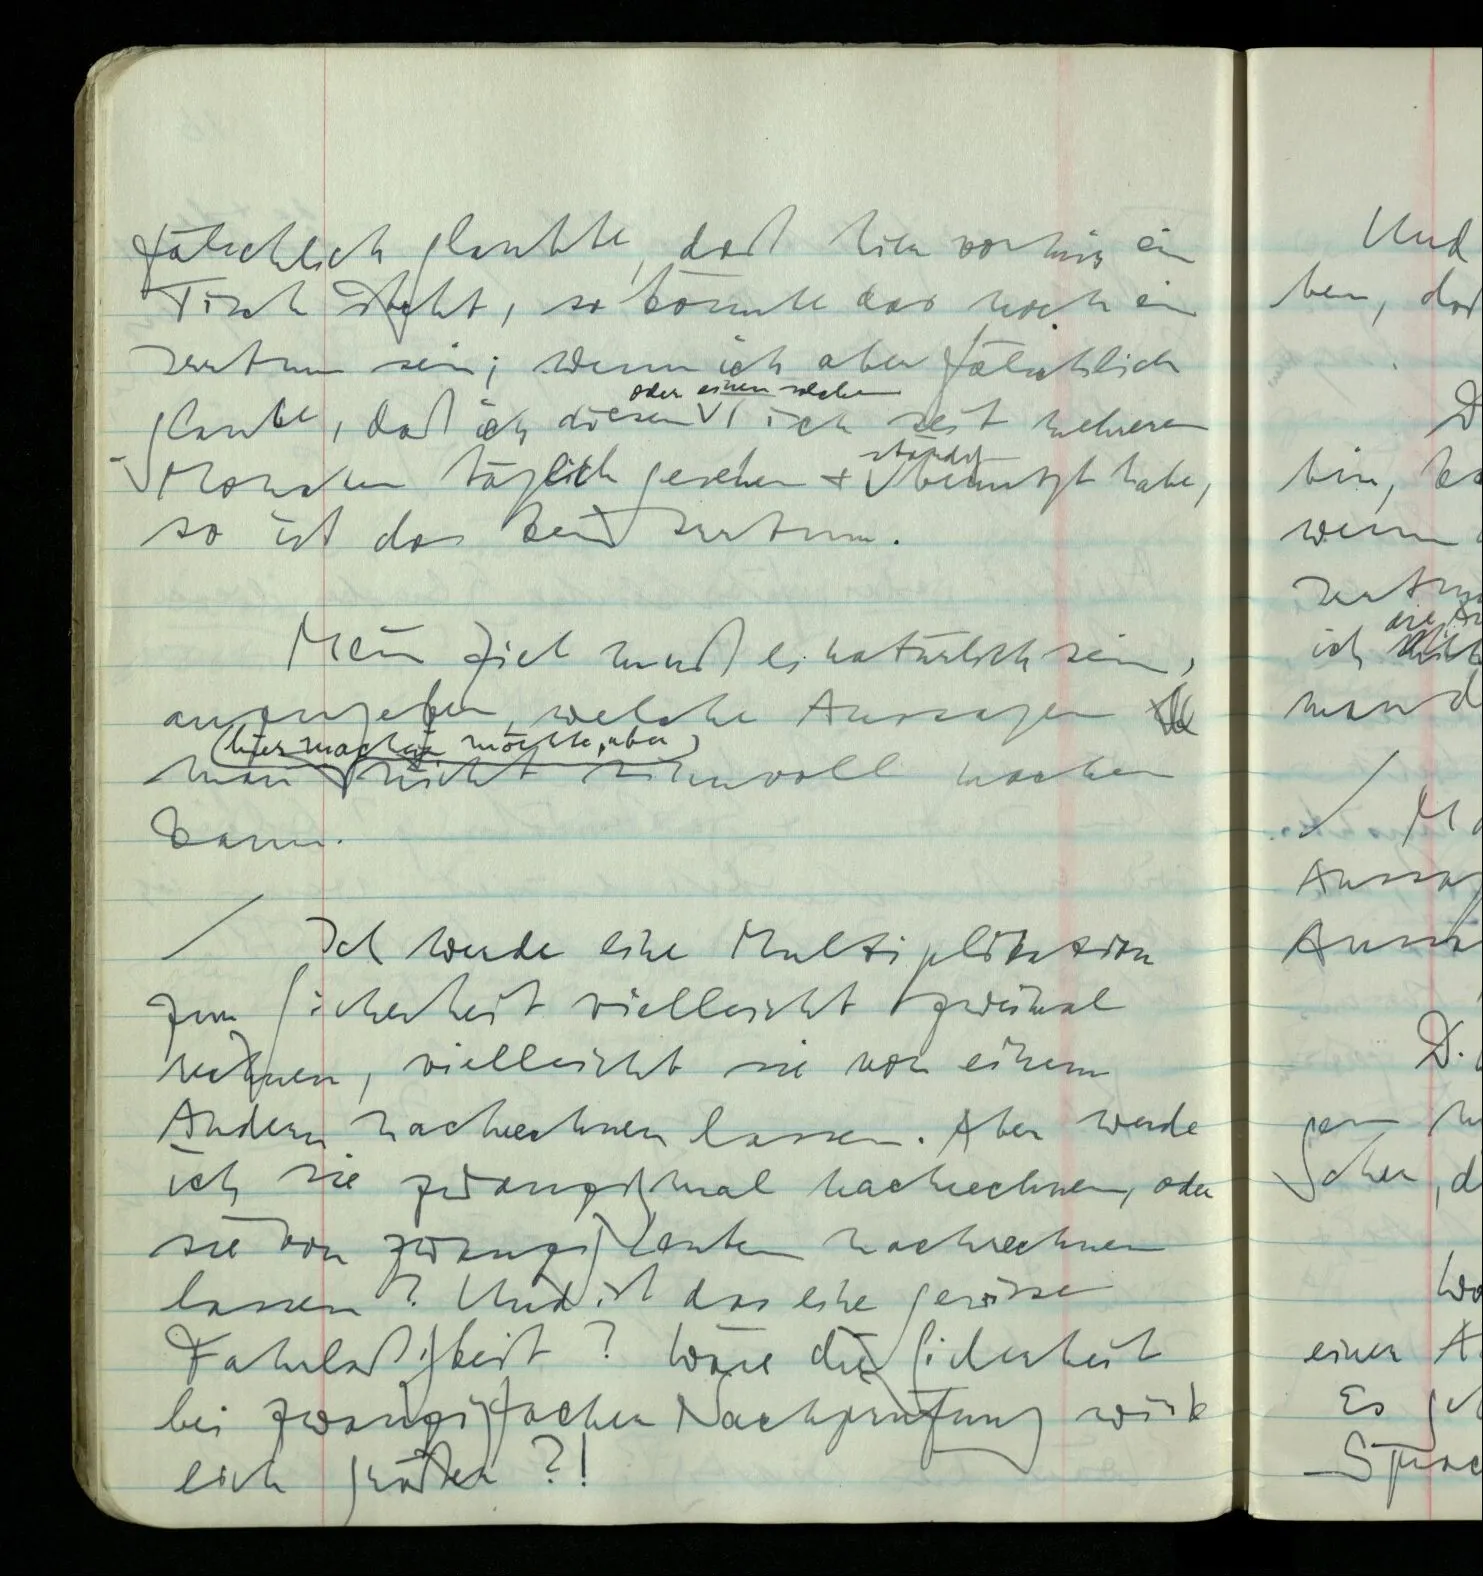 fälschlich glaubte, daß hier vor mir ein
Tisch steht, so könnte das noch ein
Irrtum sein; wenn ich aber fälschlich
oder einen solchen
glaube, daß ich diesen Tisch seit mehreren
ständig
Monaten täglich gesehen + benützt habe,
so ist das kein Irrtum.
Mein Ziel muß es natürlich sein,
anzugeben, welche Aussagen
(hier machen möchte, aber)
man nicht sinnvoll machen
kann.
/ Ich werde eine Multiplikation
zur Sicherheit vielleicht zweimal
rechnen, vielleicht sie von einem
Andern nachrechnen lassen. Aber werde
ich sie zwanzigmal nachrechnen, oder
sie von zwanzig Leuten nachrechnen
lassen? Und ist das eine gewisse
Fahrlässigkeit? Wäre die Sicherheit
bei zwanzigfacher Nachprüfung wirk
lich größer?!
Und
ben, daß
D
bin, ka
wenn
Irrtu
ich
/ M
Aussag
D.
einer A
Es g
Sprac